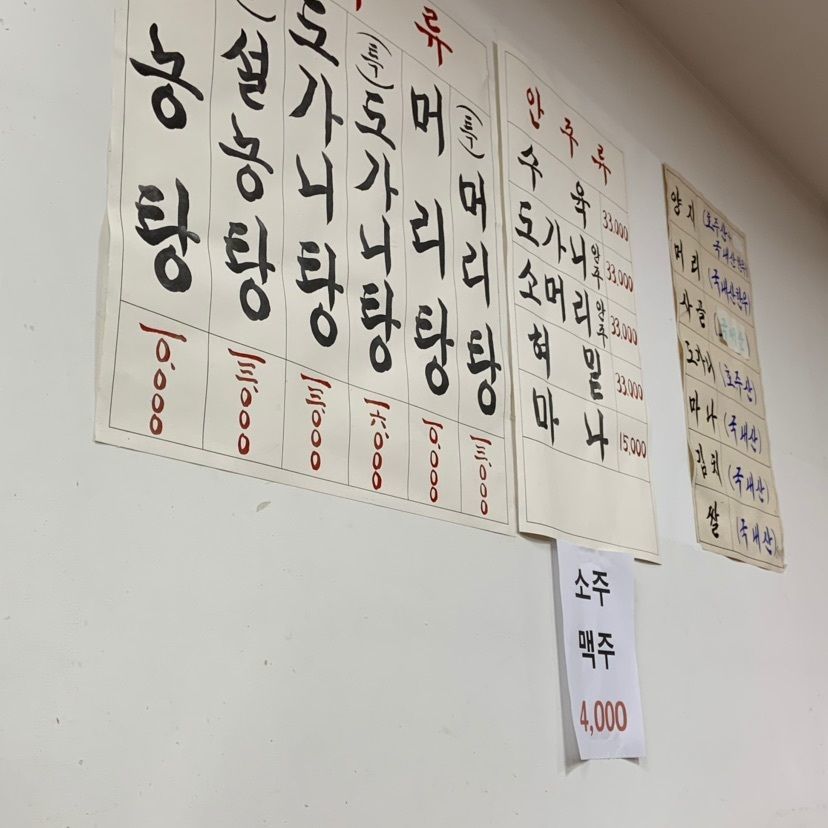 류
농탕 10,000
설농탕
도가니탕
(특)도가니탕
머리탕 10,000
(특)머리탕
안주류
수육 33,000
도가니 안주 33,000
소머리 안주 33,000
혀밑 33,000
마나 15,000
소주
맥주
4,000
양지 (호주산
국내산한우)
머리 (국내산한우)
사골
도가니 (호주산)
마나 (국내산)
김치 (국내산)
쌀 (국내산)